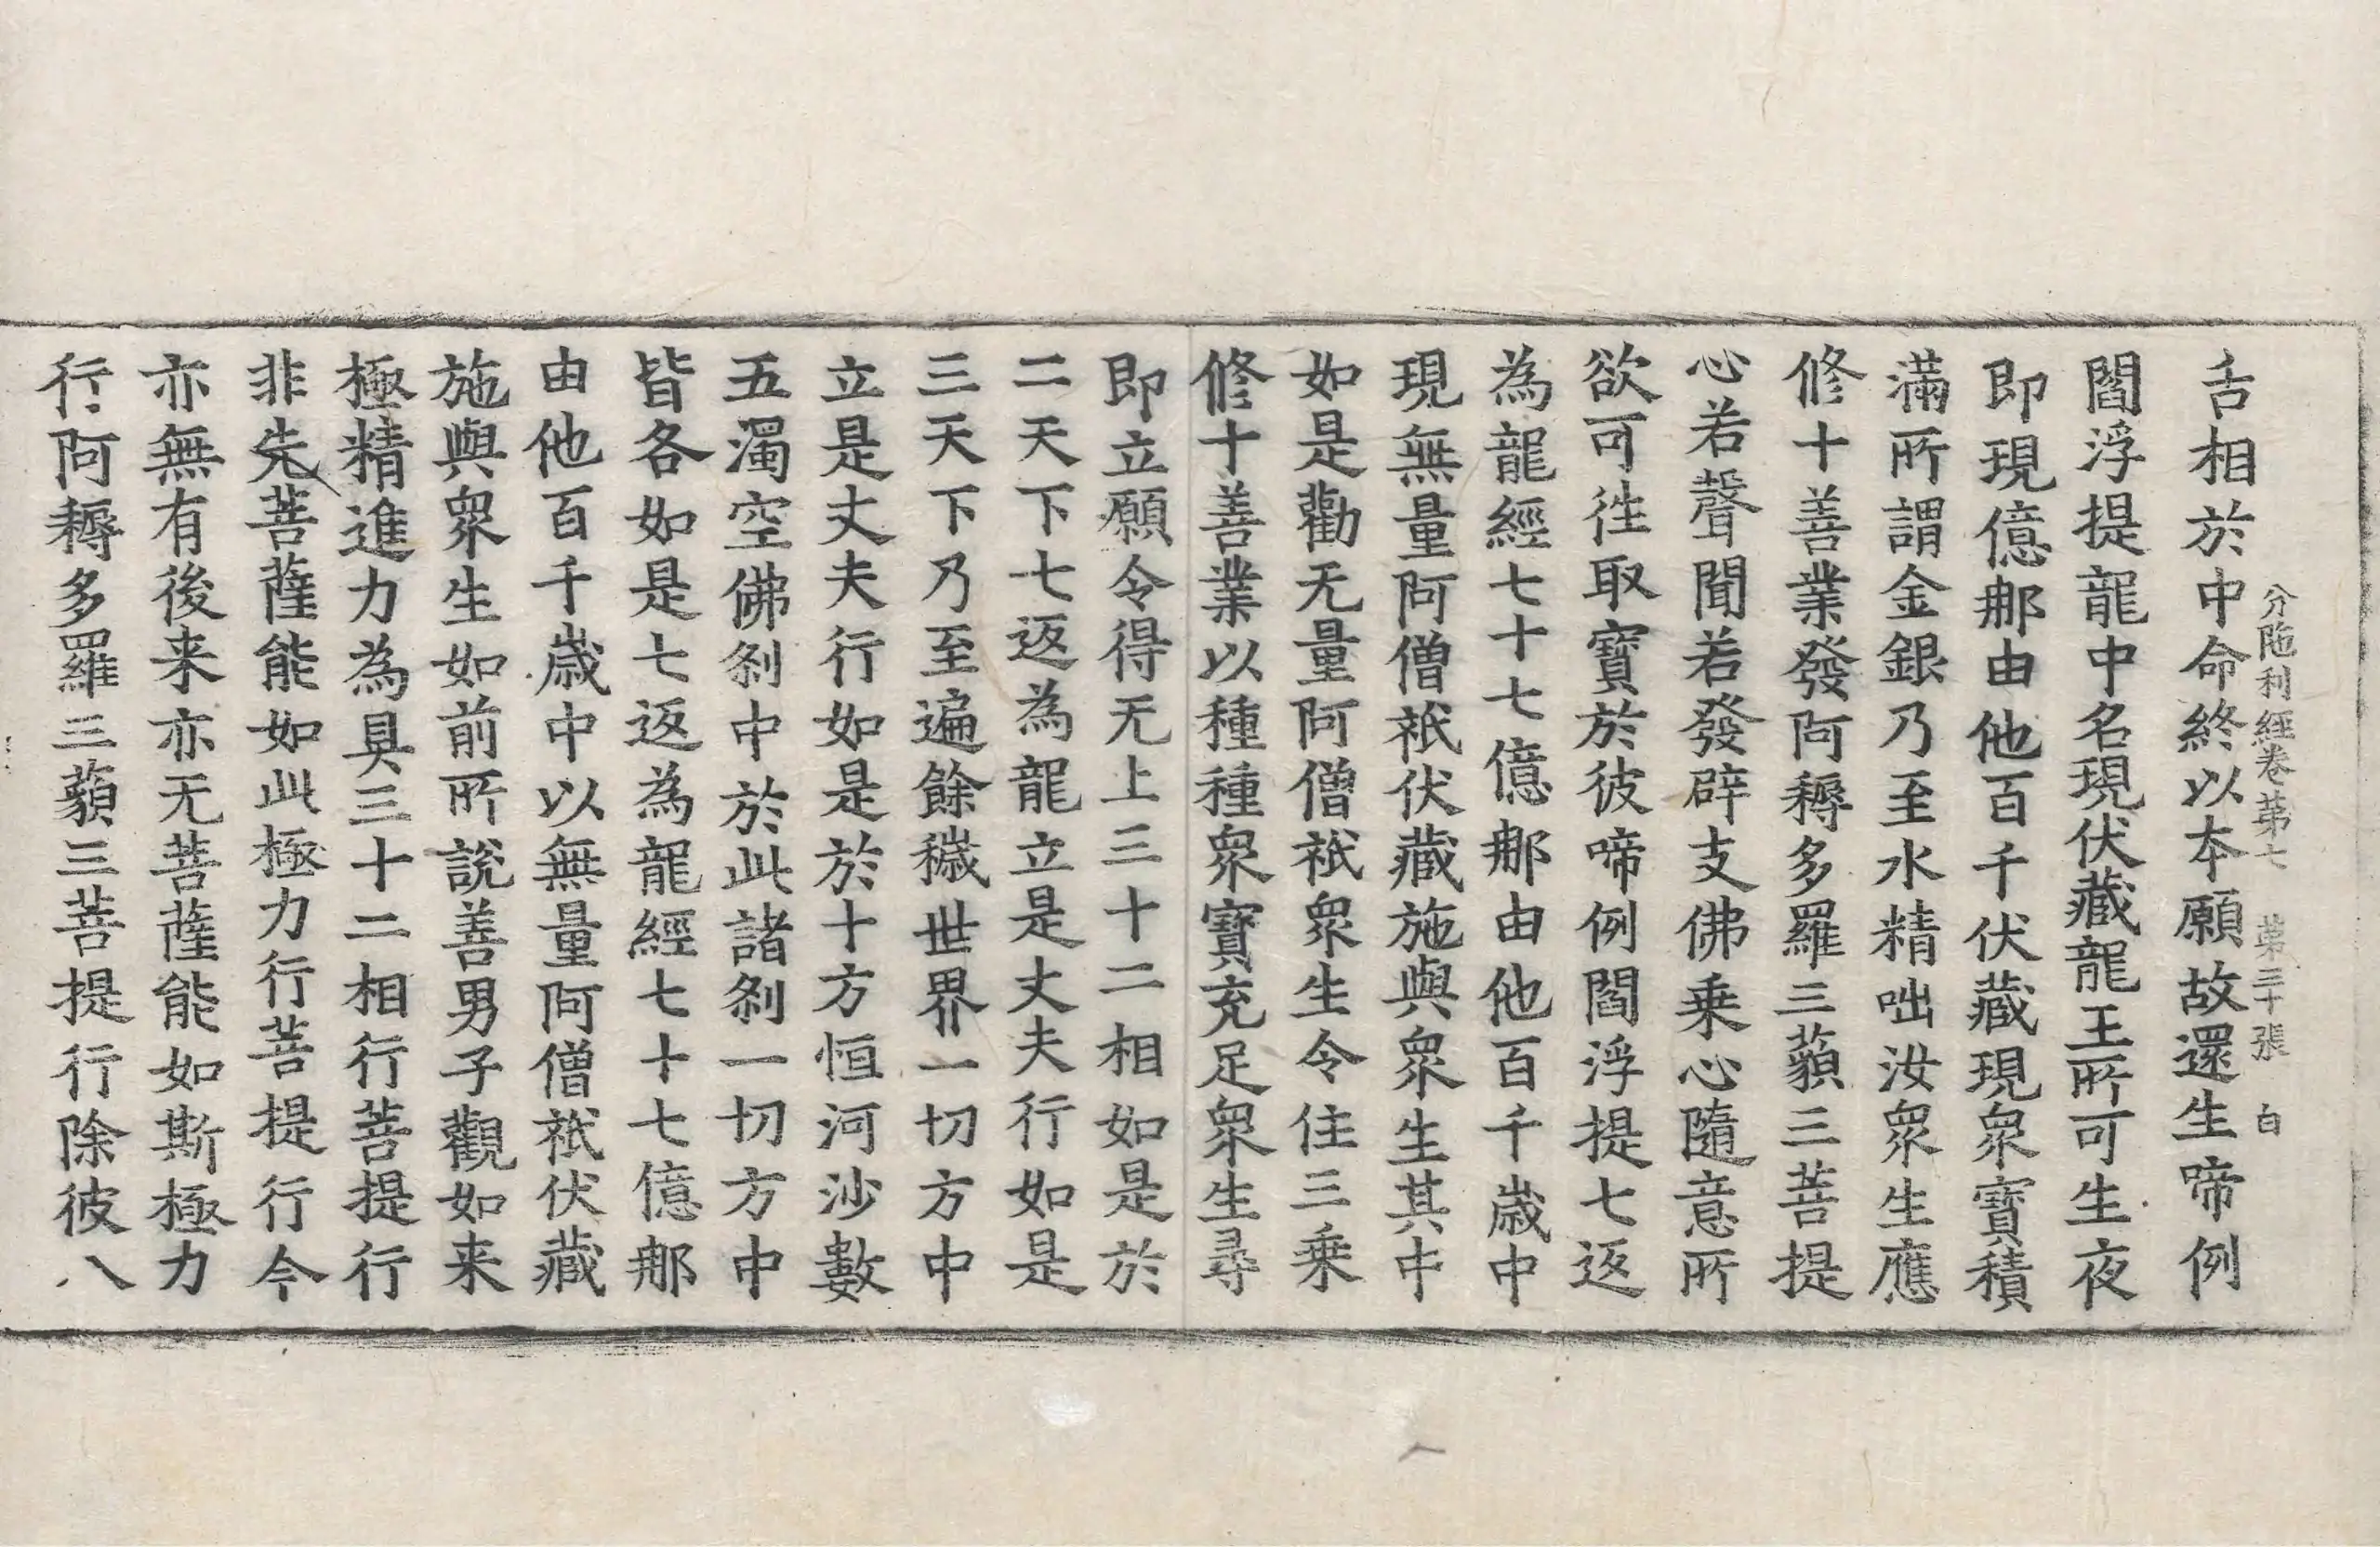 分陁利經卷第七 第三十張 白
舌相於中命終以本願故還生啼例
閻浮提龍中名現伏藏龍王所可生夜
即現億那由他百千伏藏現衆寶積
滿所謂金銀乃至水精咄汝衆生應
修十善業發阿耨多羅三藐三菩提
心若聲聞若發辟支佛乘心隨意所
欲可徃取寶於彼啼例閻浮提七返
為龍經七十七億那由他百千歲中
現無量阿僧祇伏藏施與衆生其中
如是勸无量阿僧祇衆生令住三乘
修十善業以種種衆寶充足衆生尋
即立願令得无上三十二相如是於
二天下七返為龍立是丈夫行如是
三天下乃至遍餘穢世界一切方中
立是丈夫行如是於十方恒河沙數
五濁空佛剎中於此諸剎一切方中
皆各如是七返為龍經七十七億那
由他百千歲中以無量阿僧祇伏藏
施與衆生如前所說善男子觀如来
極精進力為具三十二相行菩提行
非先菩薩能如此極力行菩提行今
亦無有後来亦无菩薩能如斯極力
行阿耨多羅三藐三菩提行除彼八